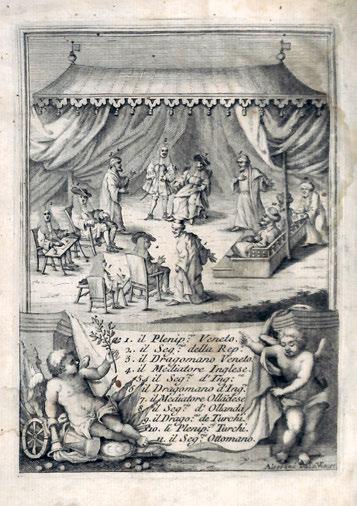 1. il Plenip.º Veneto.
2. il Seg.º della Rep.
3. il Dragomano Veneto
4. il Mediatore Inglese.
54 il Seg.º d'Ing.ª
6 il Dragomano d'Ing.ª
7. il Mediatore Olladese
8 il Seg.º d'Ollanda.
9. il Drago.º de Turchi.
10. li Plenip.ª Turchi.
11. il Seg.º Ottomano.